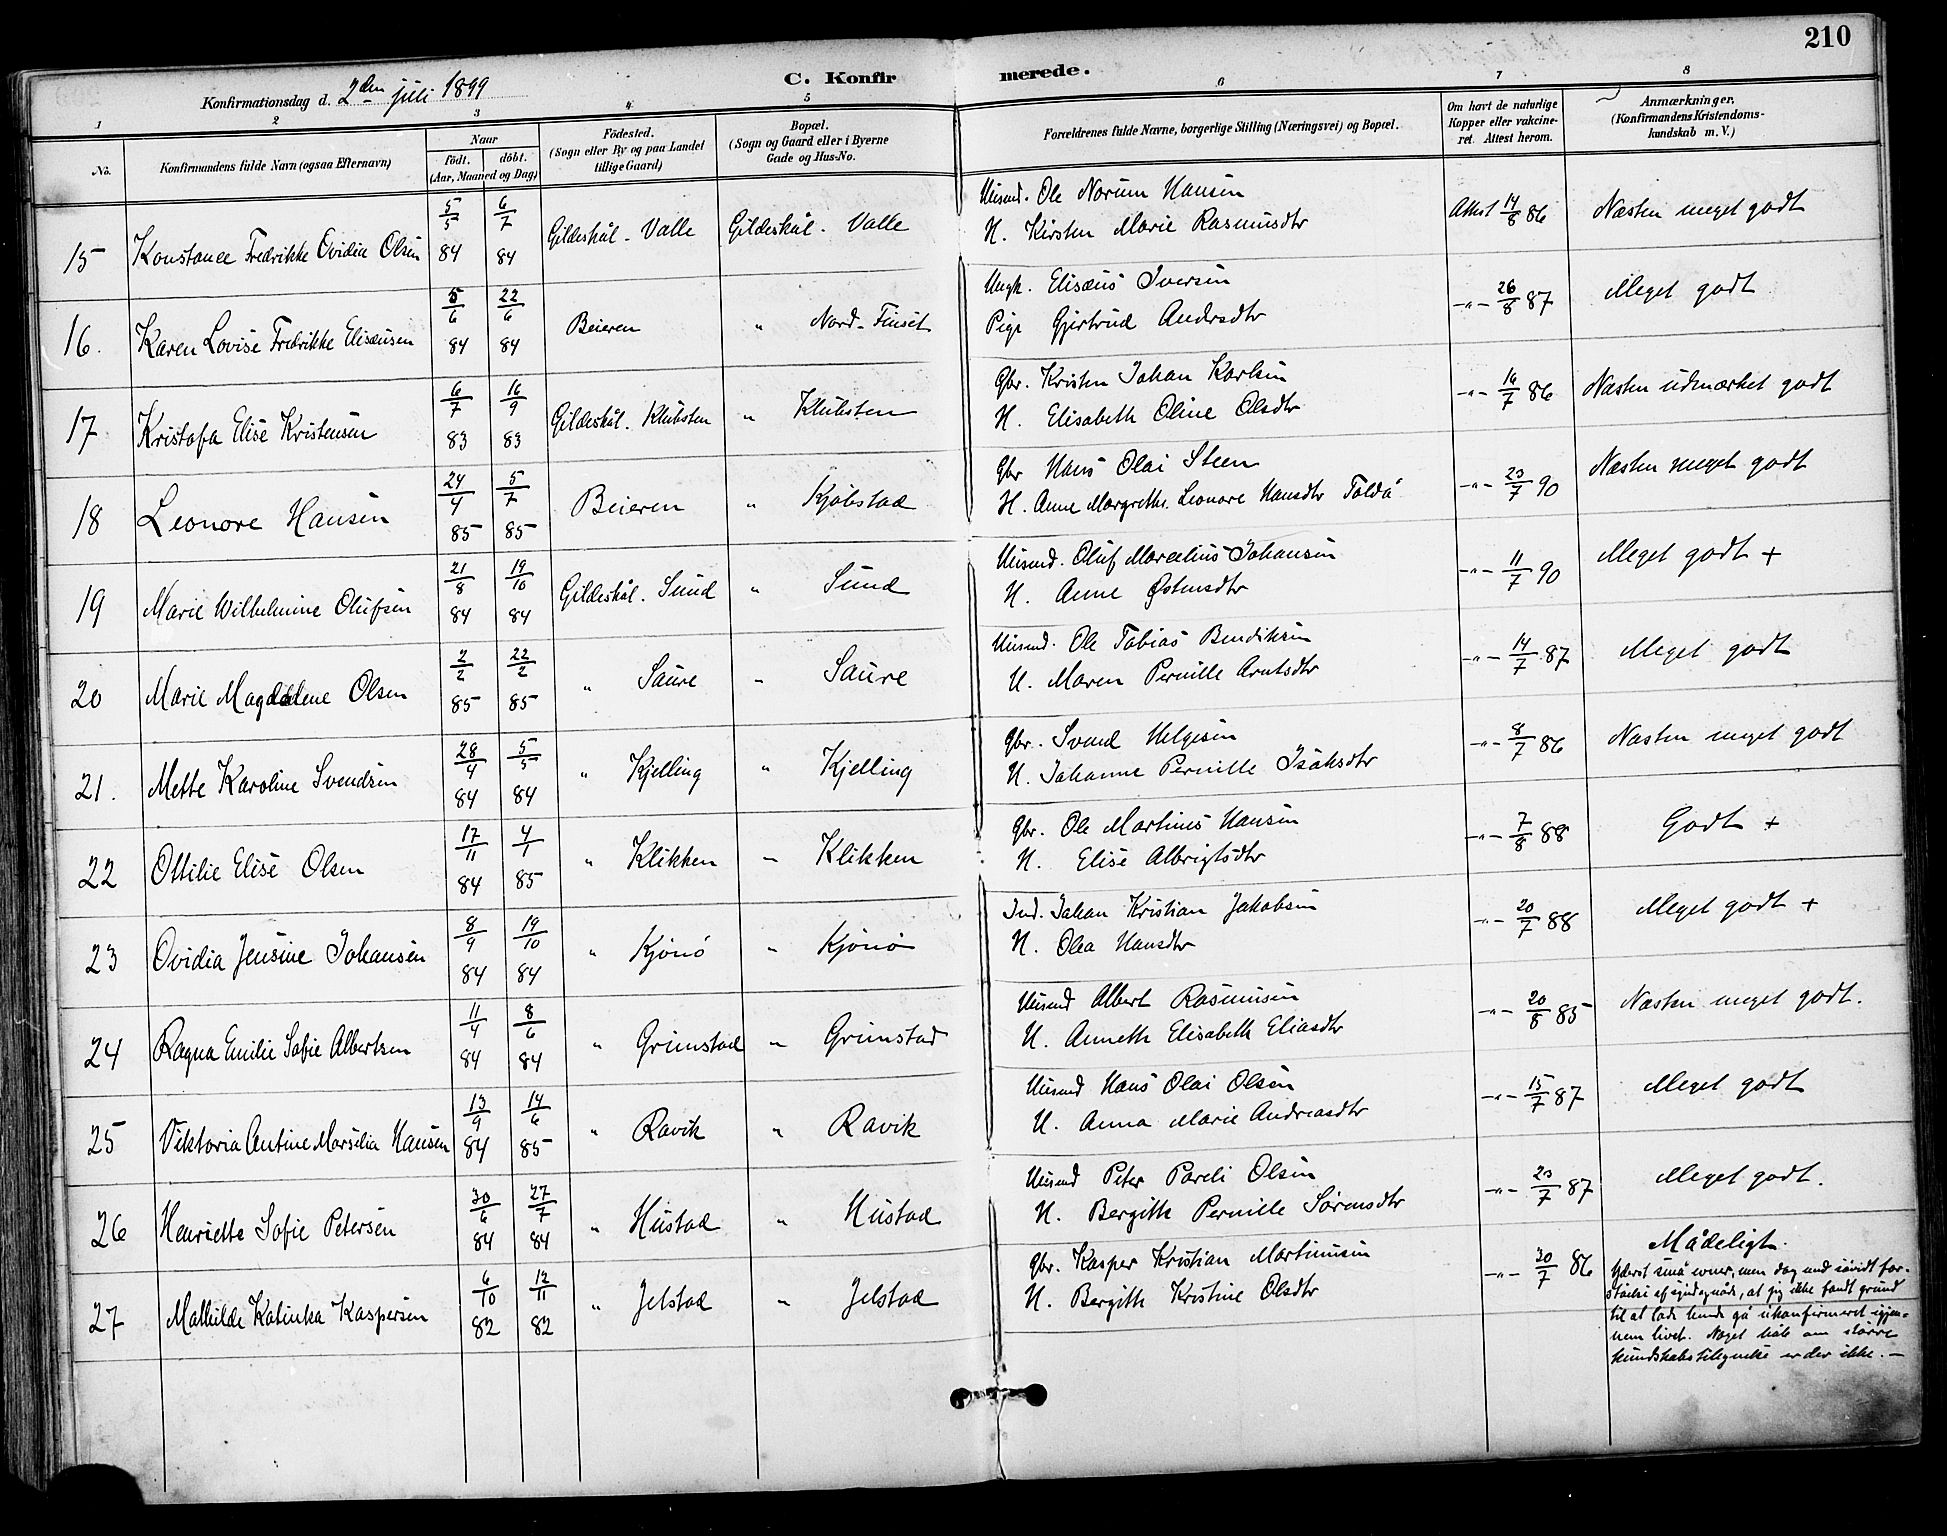 210
C. Konfirmerede.
Konfirmationsdag d. 2den juli 1899
1 2 3 4 5 6 7 8
No.
Konfirmandens fulde Navn (ogsaa Efternavn)
Naar
født. døbt.
(Aar, Maaned og Dag)
Fødested.
(Sogn eller By og paa Landet
tillige Gaard)
Bopæl.
(Sogn og Gaard eller i Byerne
Gade og Hus-No.
Forældrenes fulde Navne, borgerlige Stilling (Næringsvei) og Bopæl.
Om havt de naturlige
Kopper eller vakcine-
ret. Attest herom.
Anmærkninger.
(Konfirmandens Kristendoms-
kundskab m. V.)
15 Konstance Fredrikke Ovidia Olsen 5/5 84 6/7 84 Gildeskål. Valle Gildeskål. Valle Husmd. Ole Norum Hansen
H. Kirsten Marie Rasmusdtr Attest 14/8 86 Næsten meget godt
16. Karen Lovise Fredrikke Elisæusen 5/6 84 22/6 84 Beieren " Nord-Finset Ungk. Elisæus Iversen
Pige Gjertrud Andrsdtr -"- 26/8 87 Meget godt
17 Kristofa Elise Kristensen 6/7 83 16/9 83 Gildeskål. Klubsten " Klubsten Gbr. Kristen Johan Karlsen
H. Elisabeth Oline Olsdtr -"- 16/7 86 Næsten udmærket godt
18 Leonore Hansen 24/4 85 5/7 85 Beieren " Kjøbstad Gbr Hans Olai Steen
H. Anne Margrethe Leonore Hansdtr Toldå -"- 23/7 90 Næsten meget godt
19 Marie Wilhelmine Olufsen 21/8 84 19/10 84 Gildeskål. Sund " Sund Husmd. Oluf Marcelius Johansen
H. Anne Østensdtr -"- 11/7 90 Meget godt +
20 Marie Magdalene Olsen 2/2 85 22/2 85 " Saure " Saure Husmd. Ole Tobias Bendiksen
H. Maren Pernille Arntsdtr -"- 14/7 87 Meget godt
21. Mette Karoline Svendsen 28/4 84 5/5 84 " Kjelling " Kjelling Gbr. Svend Helgesen
H. Johanne Pernille Isaksdtr -"- 8/7 86 Næsten meget godt
22 Ottilie Elise Olsen 17/11 84 4/1 85 " Klikken " Klikken Gbr. Ole Martinus Hansen
H. Elise Albrigtsdtr -"- 7/8 88 Godt +
23 Ovidia Jensine Johansen 8/9 84 19/10 84 " Kjønø " Kjønø Ind. Johan Kristian Jakobsen
H. Olea Hansdtr -"- 20/7 88 Meget godt +
24 Ragna Emilie Sofie Albertsen 11/4 84 8/6 84 " Grimstad " Grimstad Husmd Albert Rasmussen
H. Anneth Elisabeth Eliasdtr -"- 20/8 85 Næsten meget godt.
25 Viktoria Antine Marselia Hansen 13/9 84 14/6 85 " Ravik " Ravik Husmd Hans Olai Olsen
H. Anna Marie Andreasdtr -"- 15/7 87 Meget godt
26 Henriette Sofie Petersen 30/6 84 27/7 84 " Hustad " Hustad Husmd Peter Pareli Olsen
H. Bergith Pernille Sørensdtr -"- 23/7 87 Meget godt.
27 Mathilde Katinka Kaspersen 6/10 82 12/11 82 " Jelstad " Jelstad Gbr. Kasper Kristian Martinusen
H. Bergith Kristine Olsdtr -"- 30/7 86 Mådeligt.
Yderst små evner, men dog med såvidt for-
ståelse af synd og nåde, at jeg ikke fandt grund
til at lade hende gå ukonfirmeret igjen-
nem livet. Noget håb om større
kundskabstilegnelse er der ikke. —